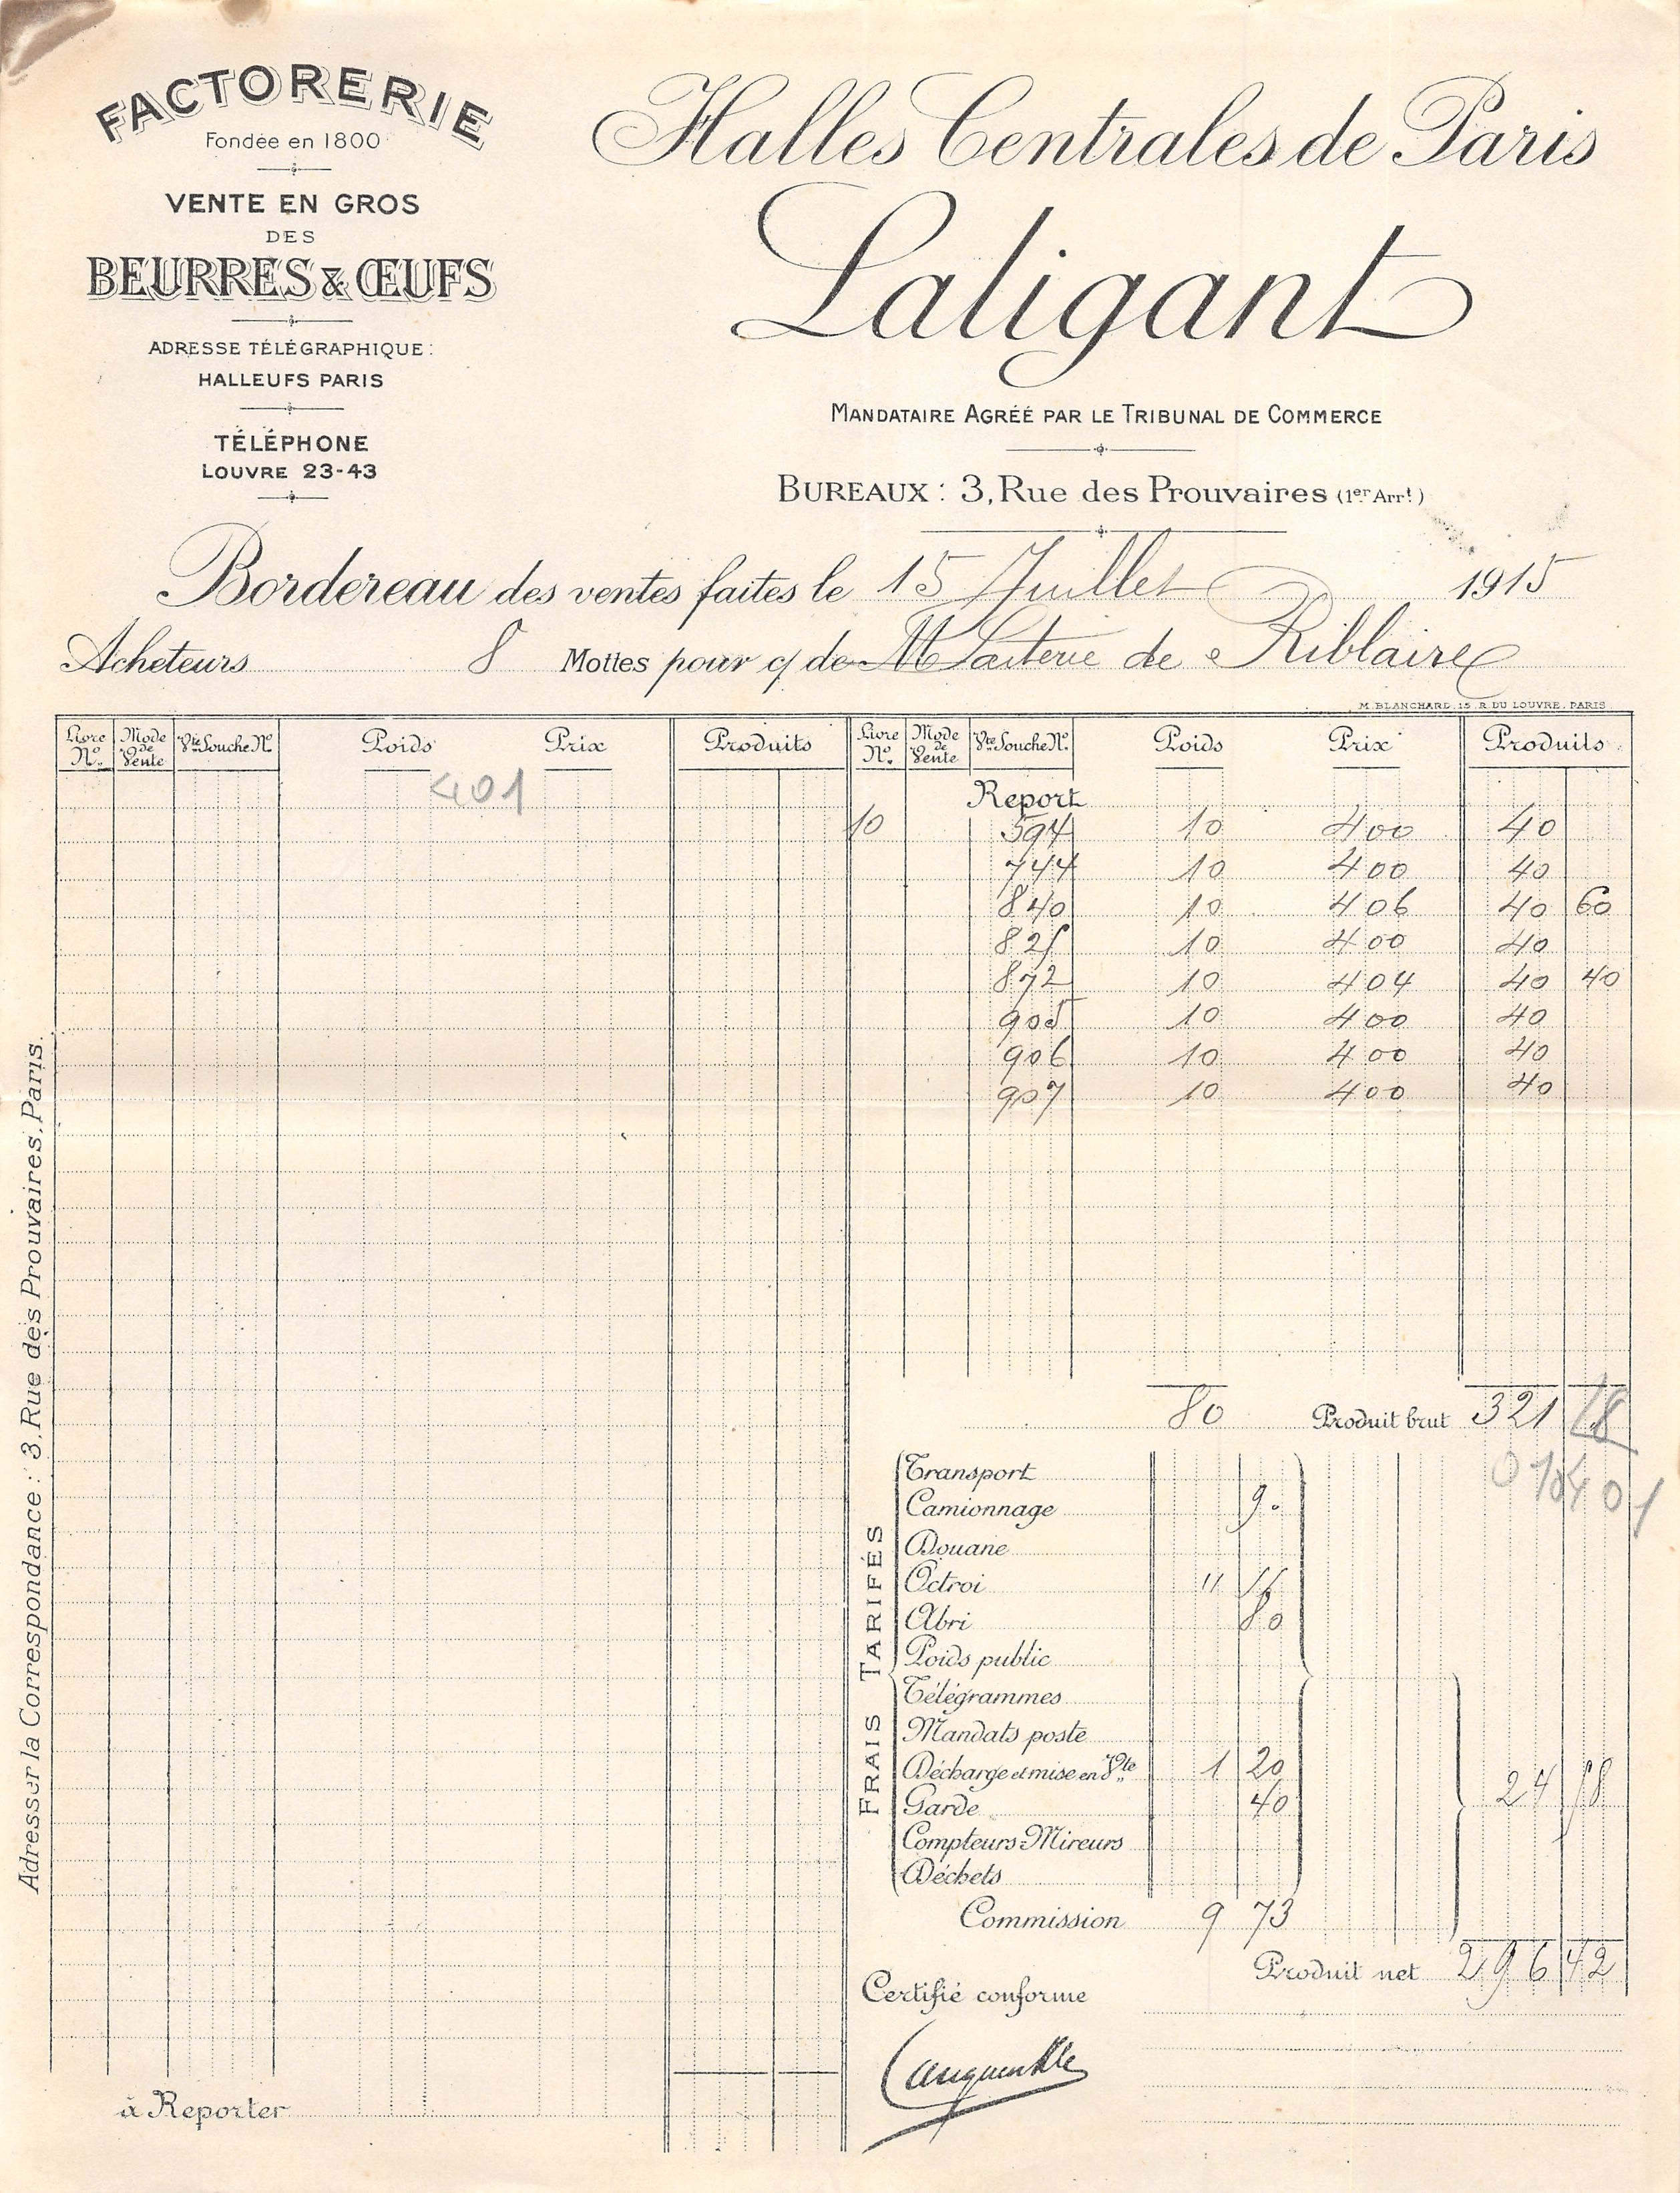 FACTORERIE
Fondée en 1800
VENTE EN GROS
DES
BEURRES & ŒUFS
ADRESSE TÉLÉGRAPHIQUE :
HALLEUFS PARIS
TÉLÉPHONE
LOUVRE 23-43
Halles Centrales de Paris
Laligant
MANDATAIRE AGRÉÉ PAR LE TRIBUNAL DE COMMERCE
BUREAUX : 3, Rue des Prouvaires (1er Arrt)
Bordereau des ventes faites le 15 Juillet 1915
Acheteurs 8 Mottes pour c/ de M Laiterie de Riblaire
M. BLANCHARD, 15, R. DU LOUVRE, PARIS
Livre No. Mode de Vente Vte Souche No Poids Prix Produits Livre No. Mode de Vente Vte Souche No. Poids Prix Produits
401
Report
10 594 10 400 40
744 10 400 40
840 10 406 40 60
825 10 400 40
872 10 404 40 40
905 10 400 40
906 10 400 40
907 10 400 40
80 Produit brut 321
01 401
FRAIS TARIFÉS
Transport
Camionnage 90
Douane
Octroi 11
Abri 80
Poids public
Télégrammes
Mandats poste
Décharge et mise en Vte 1 20
Garde 40
24 58
Compteurs-Mireurs
Déchets
Commission 9 73
Produit net 296 42
Certifié conforme
à Reporter
Adresser la Correspondance : 3, Rue des Prouvaires, Paris.